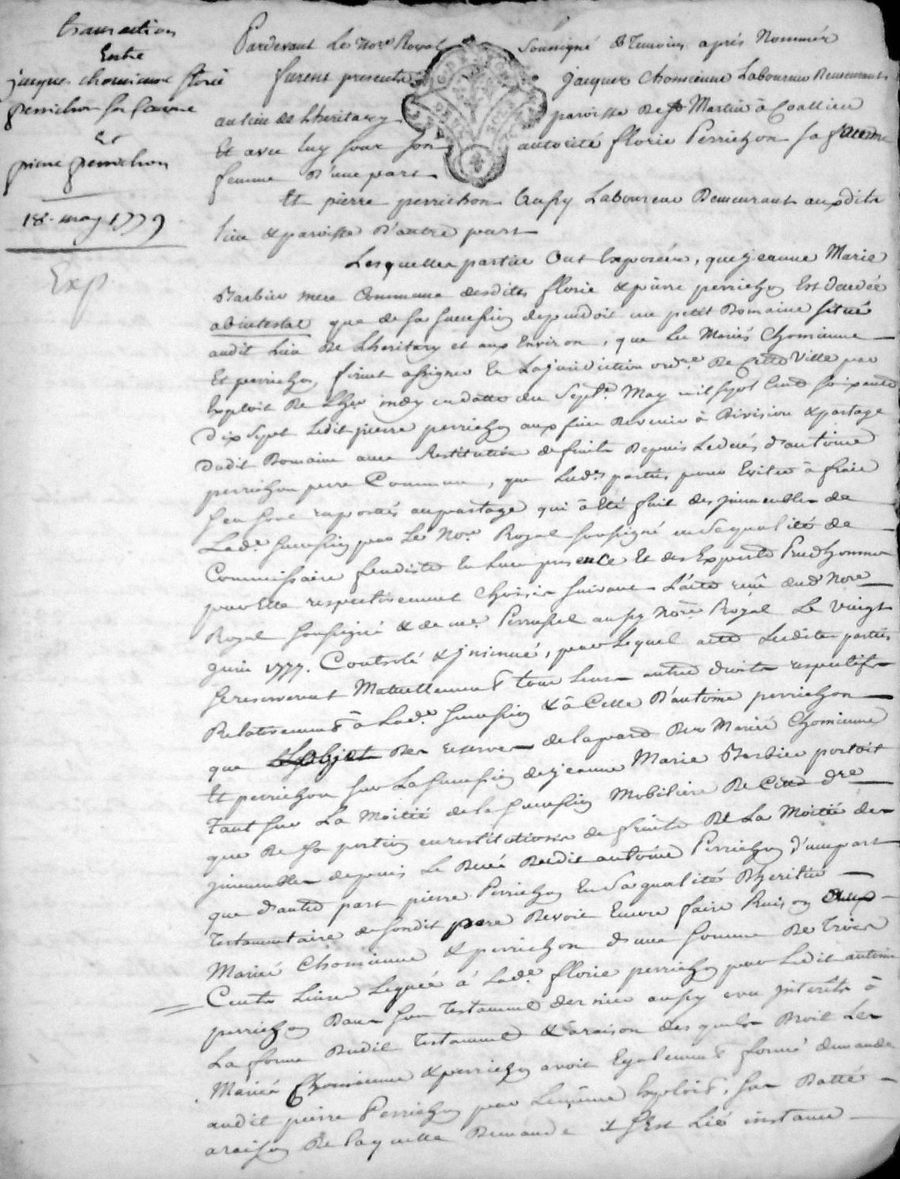 transaction
Entre
jacque chomienne florie
perrichon sa femme
Et
pierre perrichon
18 may 1779
Exp
Pardevant Le nore Royal Soussigné & Temoins aprés Nommés
furent presents jacques Chomienne Laboureur Demeurant
au lieu de Lheritary paroisse de St Martin à Coallieu
Et avec luy sous son autorité florie Perrichon sa
femme D'une part
Et pierre perrichon Aussy Laboureur Demeurant auxdits
lieu & paroisse D'autre part
Lesquelles partie Ont Exposées, que jeanne Marie
Barbier mere Commune desdits florie & pierre perrichon Est decedée
abintestat que de sa succession dependoit un petit Domaine situé
audit Lieu De Lheritary et aux Environ, que Les Mariés Chomienne
Et perrichon firent assigner En La jurisdiction ordre De Cette Ville par
Exploit De en datte du Sept May mil sept Cent soixante
Dix Sept Ledit pierre perrichon aux fins De venir à Division & partage
Dudit Domaine avec Restitution de fruits Depuis Le decés d'antoine
perrichon pere Commun, que Lesd. parties pour Eviter à frais
sen sont raportés au partage qui à été fait des jmmeubles de
Lade succession par Le Nore Royal soussigné en sa qualité de
Commissaire feudiste En Leur presence Et des Experts Prudhommes
par Elle respectivement Choisis suivant L'acte reçû dud Nore
Royal soussigné & de me Perrussel aussy Nore Royal Le vingt
juin 1777. Controlé & jnsinué, par Lequel acte Lesdites parties
se reserverent Mutuellement tous Leurs autres droits respectifs
Relativement à Lade succession & à Celle D'antoine perrichon
que L'objet Des reserves de la part Des Mariés Chomienne
Et perrichon sur La succession de jeanne Marie Barbier portoit
Tant sur La Moitié de la succession Mobiliere De Cette dre
que De sa portion en restitutions de fruits De La Moitié des
jmmeubles depuis Le Decés Dudit antoine Perrichon d'une part
que d'autre part pierre Perrichon En sa qualité D'heritier
Testamentaire de sondit pere Devoit Encore faire Raison Aux
Mariés Chomienne & perrichon d'une somme De Trois
Cents Livre Leguée à Lade florie perrichon par Ledit antoine
perrichon Dans son Testament dernier aussy Avec jnterêts à
La forme Dudit Testament & à raison des quels Droit Les
Mariés Chomienne & perrichon avoit Egalement formé demande
audit pierre Perrichon par Le même Exploit, sus Datté
a raison De laquelle Demande il s'est Lié instance